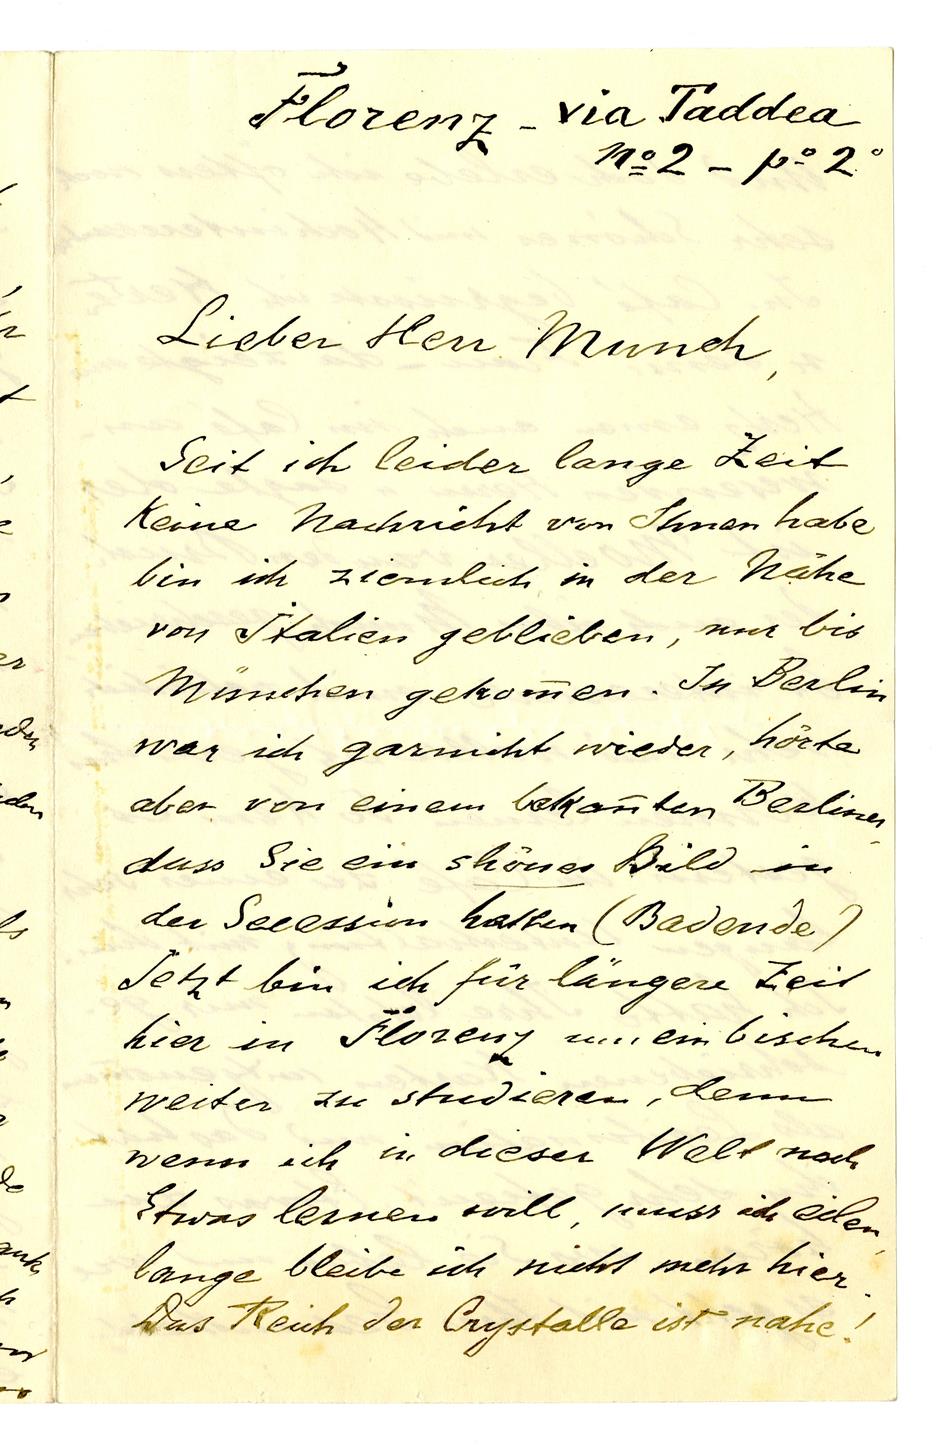 Florenz – via Taddea
no 2 – po 2o
Lieber Herr Munch,
Seit ich leider lange Zeit
Keine Nachricht von Ihnen habe
bin ich ziemlich in der Nähe
von Italien geblieben, nur bis
München gekom̅en. In Berlin
war ich garnicht wieder, hörte
aber von einem bekan̅ten Berliner,
dass Sie ein shönes Bild in
der Secession hatten (Badende)
Jetzt bin ich für längere Zeit
hier in Florenz um ein bischen
weiter zu studieren, denn
wenn ich in dieser Welt noch
Etwas lernen will, muss ich eilen,
lange bleibe ich nicht mehr hier.
Das Reich der Crystalle ist nahe!